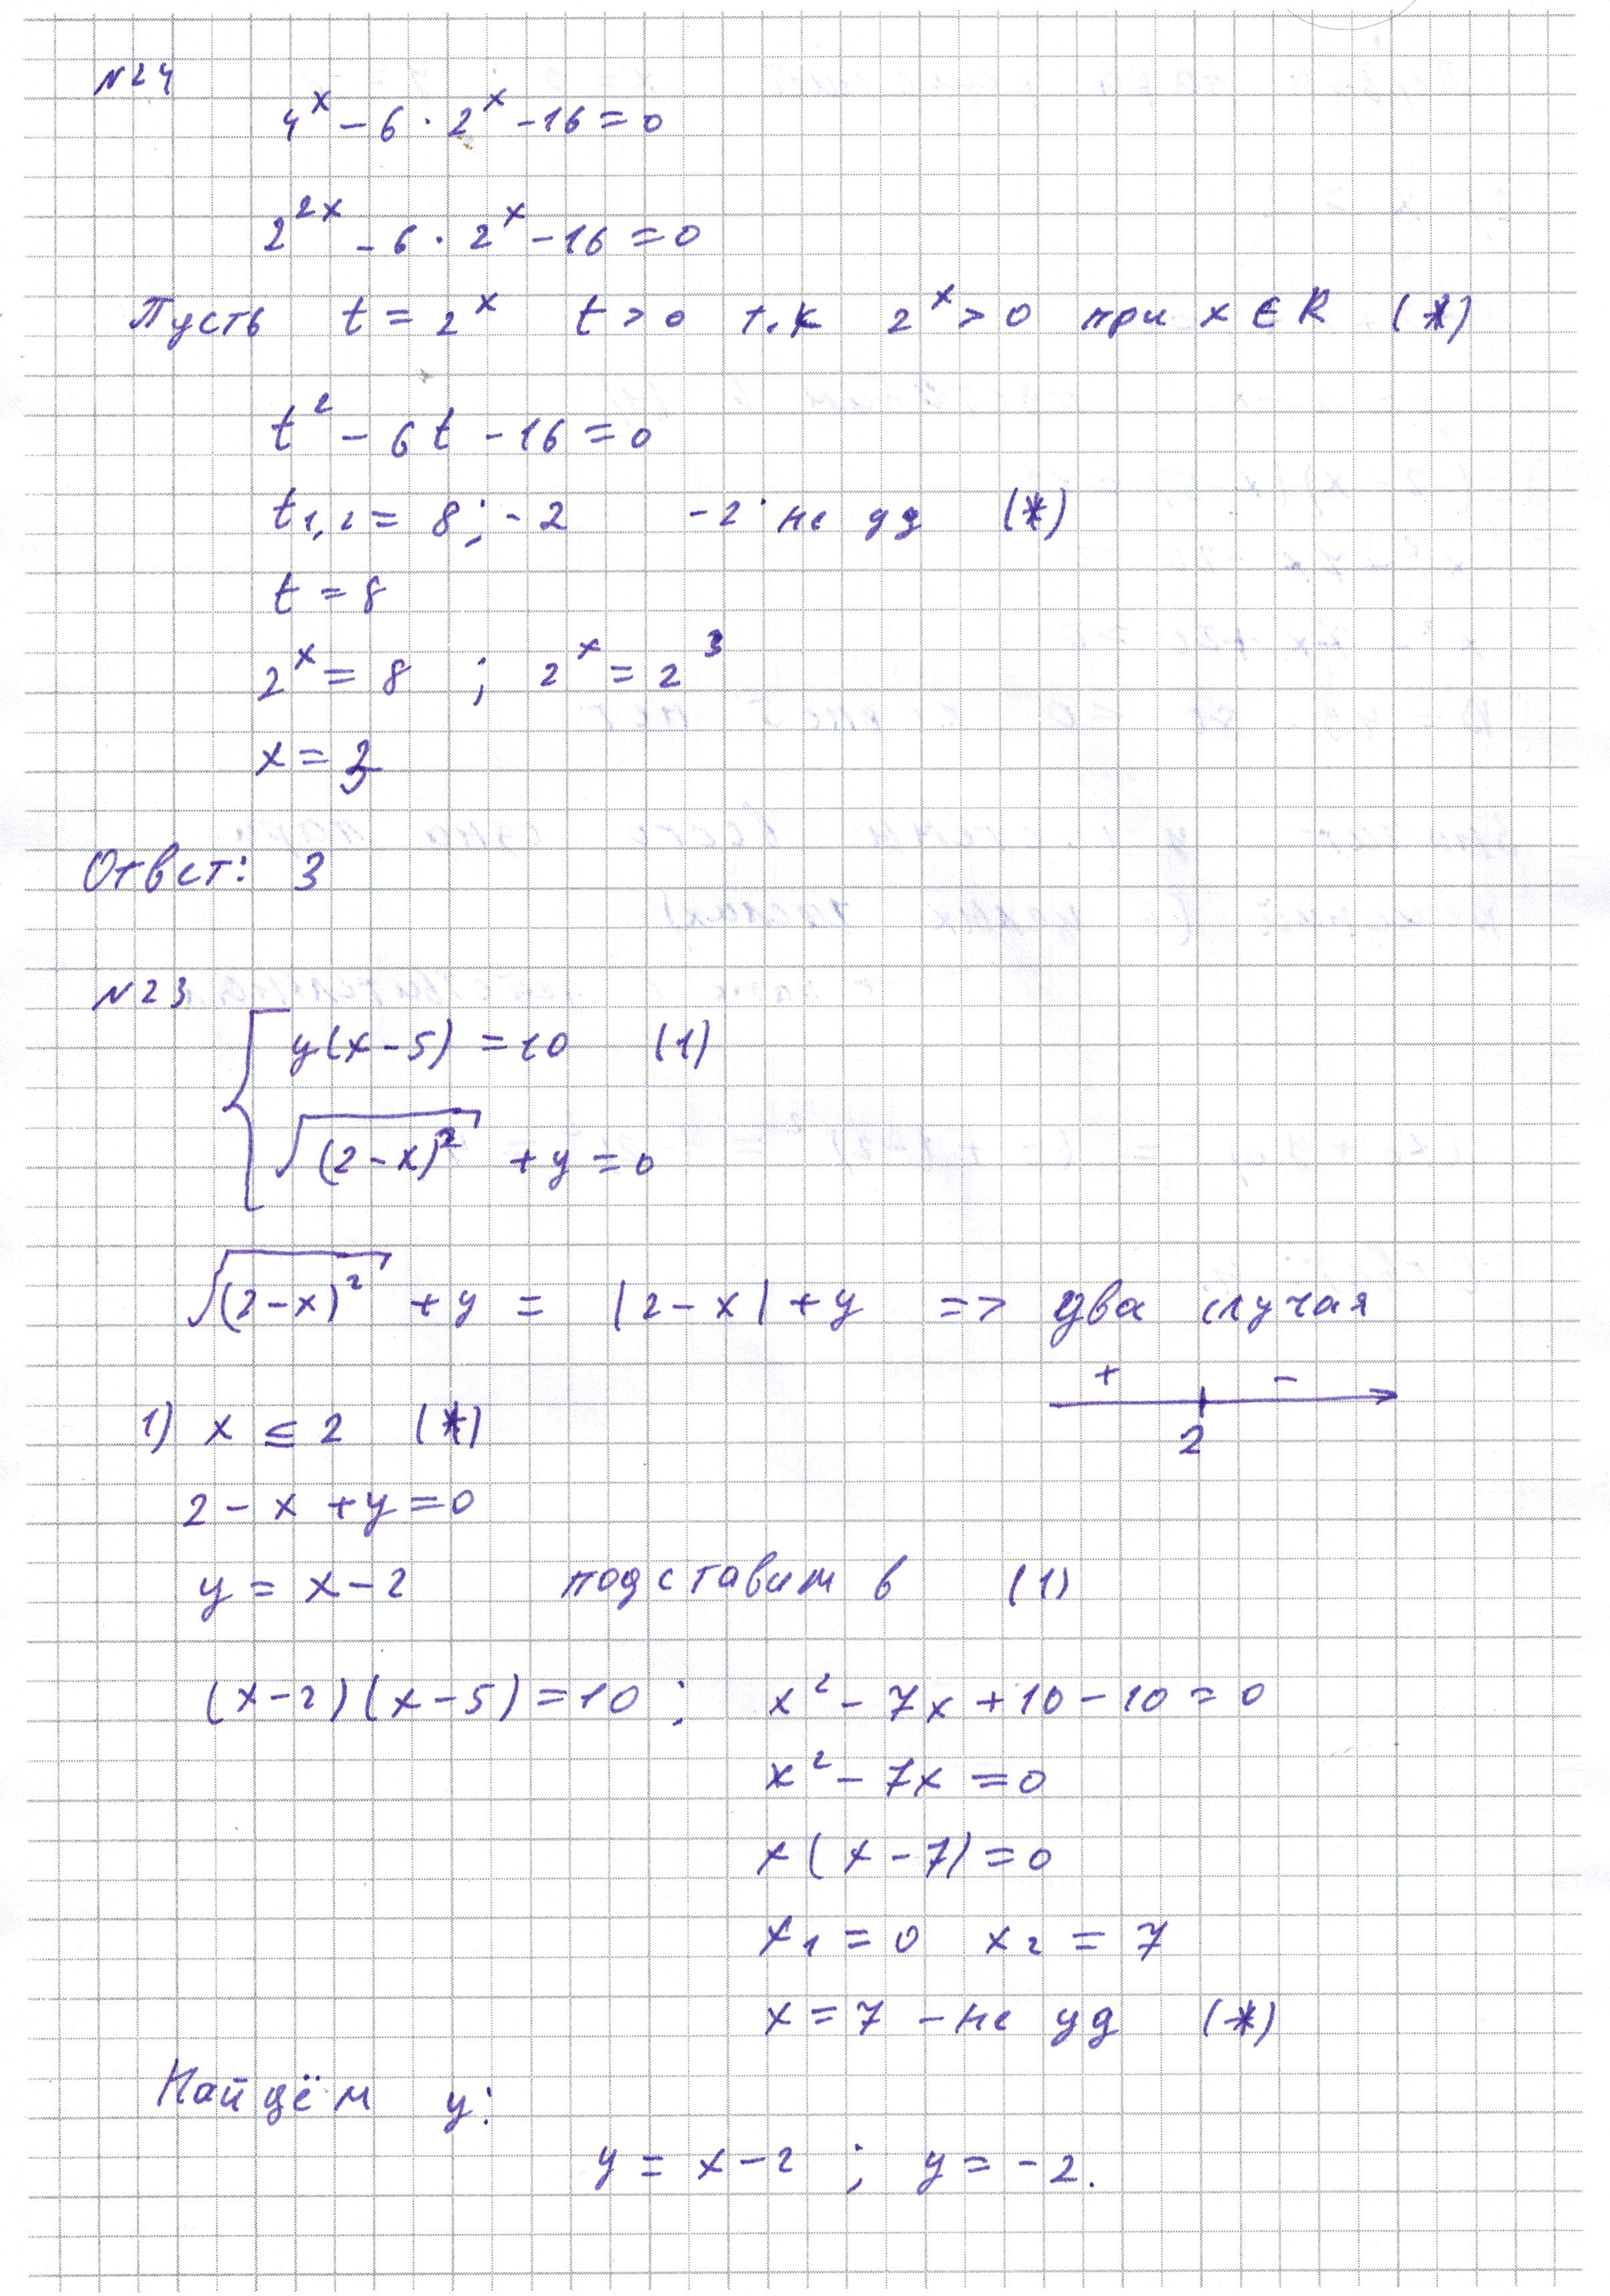 N24
4^x - 6 · 2^x - 16 = 0
2^2x - 6 · 2^x - 16 = 0
Пусть t = 2^x t > 0 т.к 2^x > 0 при x ∈ R (*)
t² - 6t - 16 = 0
t1,2 = 8; -2 -2 не уд (*)
t = 8
2^x = 8 ; 2^x = 2^3
x = 3
Ответ: 3
N23
y(x-5) = 10 (1)
√(2-x)² + y = 0
√(2-x)² + y = |2-x| + y => два случая
+ -
2
1) x ≤ 2 (*)
2 - x + y = 0
y = x - 2 подставим в (1)
(x-2)(x-5) = 10 ; x² - 7x + 10 - 10 = 0
x² - 7x = 0
x(x-7) = 0
x1 = 0 x2 = 7
x = 7 - не уд (*)
Найдём y:
y = x - 2 ; y = -2.